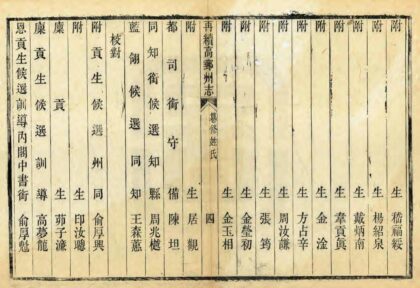 附生嵇福綏
附生楊紹泉
附生戴炳南
附生韋貢眞
附生金淦
附生方占辛
附生周汝謙
附生張筠
附生金瑩初
附生金玉相
再續高郵州志 纂修姓氏 四
附生居觀
都司銜守備陳坦
同知銜候選知縣周兆樾
藍翎候選同知王森蕙
校對
附貢生候選州同俞厚興
附生印汝聰
廩貢生茆子濂
廩貢生候選訓導高夢龍
恩貢生候選訓導內閣中書銜俞厚魁